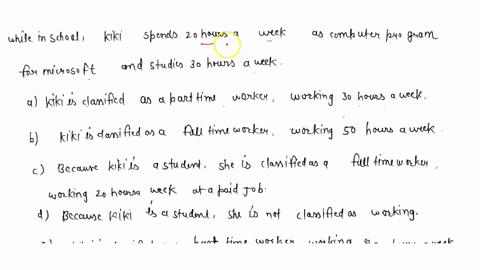 while in school, kiki spends 20 hours a week as computer program
for microsoft and studies 30 hours a week.
a) kiki is classified as a part time worker, working 30 hours a week.
b) kiki is clanified as a full time worker, working 50 hours a week.
c) Because kiki is a student, she is classified as a full time worker,
working 20 hours a week at a paid job.
d) Because kiki is a student, she is not classified as working.
part time worker working